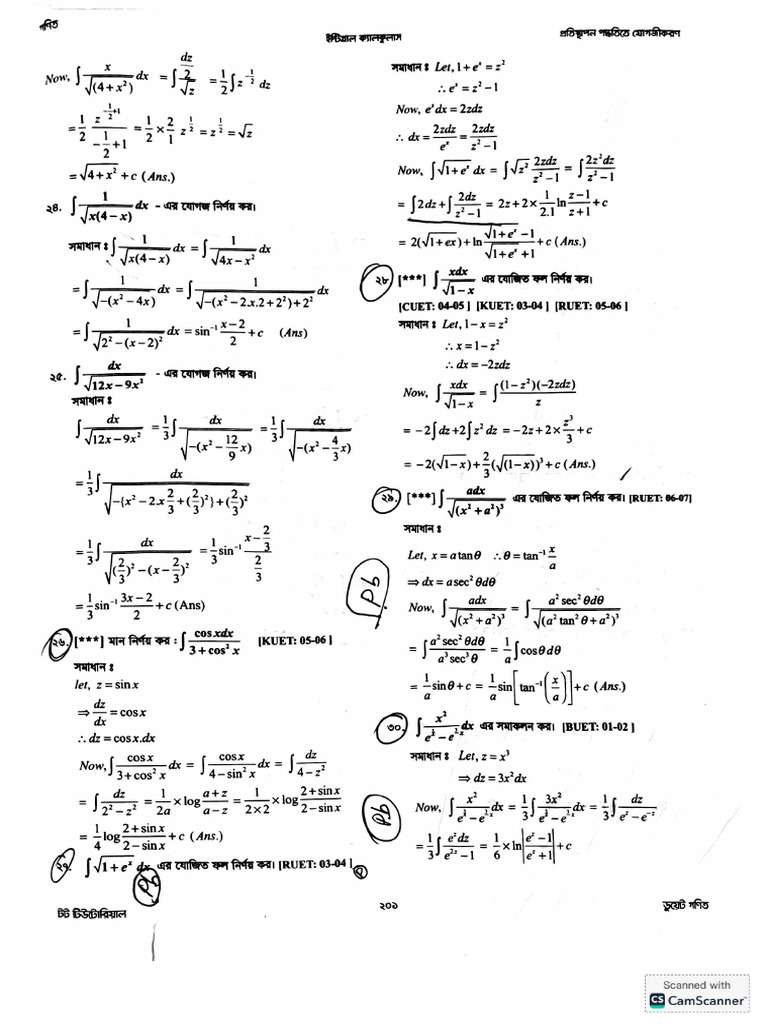 গণিত
ইন্টিগ্রাল ক্যালকুলাস
প্রতিস্থাপন পদ্ধতিতে যোগজীকরণ
Now, ∫ x/√(4+x²) dx = ∫ (dz/2)/√z = 1/2 ∫ z^(-1/2) dz
= 1/2 z^(-1/2+1)/(-1/2+1) = 1/2 × 2/1 z^(1/2) = z^(1/2) = √z
= √4+x² + c (Ans.)
২৪. ∫ 1/√(x(4−x)) dx - এর যোগজ নির্ণয় কর।
সমাধান : ∫ 1/√(x(4−x)) dx = ∫ 1/√(4x−x²) dx
= ∫ 1/√(−(x²−4x)) dx = ∫ 1/√(−(x²−2.x.2+2²)+2²) dx
= ∫ 1/√(2²−(x−2)²) dx = sin⁻¹ (x−2)/2 + c (Ans)
২৫. ∫ dx/√(12x−9x²) - এর যোগজ নির্ণয় কর।
সমাধান :
∫ dx/√(12x−9x²) = 1/3 ∫ dx/√(−(x²−12/9 x)) = 1/3 ∫ dx/√(−(x²−4/3 x))
= 1/3 ∫ dx/√(−{x²−2.x.2/3+(2/3)²}+(2/3)²)
= 1/3 ∫ dx/√((2/3)²−(x−2/3)²) = 1/3 sin⁻¹ (x−2/3)/(2/3)
= 1/3 sin⁻¹ (3x−2)/2 + c (Ans)
২৬. [***] মান নির্ণয় কর : ∫ cosxdx/(3+cos²x) [KUET: 05-06 ]
সমাধান :
let, z = sin x
⇒ dz/dx = cos x
∴ dz = cosx.dx
Now, ∫ cosx/(3+cos²x) dx = ∫ cosx/(4−sin²x) dx = ∫ dz/(4−z²)
= ∫ dz/(2²−z²) = 1/2a × log (a+z)/(a−z) = 1/(2×2) × log (2+sinx)/(2−sinx)
= 1/4 log (2+sinx)/(2−sinx) + c (Ans.)
২৭. ∫ √(1+eˣ) dx এর যোজিত ফল নির্ণয় কর। [RUET: 03-04 ]
সমাধান : Let, 1+eˣ = z²
∴ eˣ = z²−1
Now, eˣdx = 2zdz
∴ dx = 2zdz/eˣ = 2zdz/(z²−1)
Now, ∫ √(1+eˣ) dx = ∫ √z² 2zdz/(z²−1) = ∫ 2z²dz/(z²−1)
= ∫ 2dz + ∫ 2dz/(z²−1) = 2z + 2× 1/2.1 ln (z−1)/(z+1) + c
= 2(√1+ex) + ln (√(1+eˣ)−1)/(√(1+eˣ)+1) + c (Ans.)
২৮ [***] ∫ xdx/√(1−x) এর যোজিত ফল নির্ণয় কর।
[CUET: 04-05 ] [KUET: 03-04 ] [RUET: 05-06 ]
সমাধান : Let, 1−x = z²
∴ x = 1−z²
∴ dx = −2zdz
Now, ∫ xdx/√(1−x) = ∫ (1−z²)(−2zdz)/z
= −2∫ dz + 2∫ z² dz = −2z + 2× z³/3 + c
= −2(√1−x) + 2/3 (√(1−x))³ + c (Ans.)
২৯. [***] ∫ adx/√(x²+a²)³ এর যোজিত ফল নির্ণয় কর। [RUET: 06-07]
সমাধান :
Let, x = a tan θ ∴ θ = tan⁻¹ x/a
⇒ dx = a sec² θdθ
Now, ∫ adx/√(x²+a²)³ = ∫ a² sec² θdθ/√(a² tan² θ+a²)³
= ∫ a² sec² θdθ/a³ sec³ θ = 1/a ∫ cos θ dθ
= 1/a sin θ + c = 1/a sin[tan⁻¹(x/a)] + c (Ans.)
৩০. ∫ x²/(e^x³ − e^−x³) dx এর সমাকলন কর। [BUET: 01-02 ]
সমাধান : Let, z = x³
⇒ dz = 3x²dx
Now, ∫ x²/(e^x³ − e^−x³) dx = 1/3 ∫ 3x²/(e^x³ − e^−x³) dx = 1/3 ∫ dz/(e^z − e^−z)
= 1/3 ∫ e^z dz/(e^2z − 1) = 1/6 × ln|(e^z − 1)/(e^z + 1)| + c
টট টিউটোরিয়াল
২০১
ডুয়েট গণিত
Scanned with
CS CamScanner